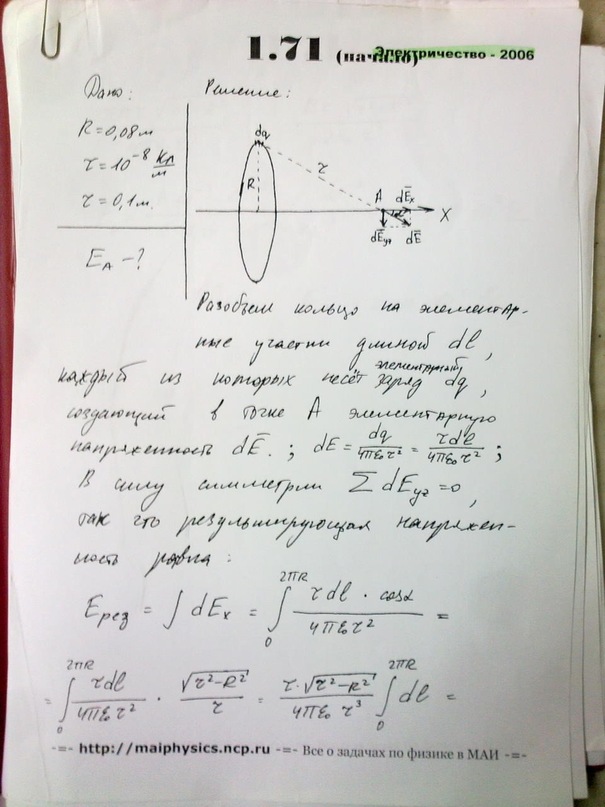 1.71 (начало) Электричество - 2006
Дано: Решение:
R = 0,08 м
τ = 10⁻⁸ Кл/м
r = 0,1 м.
E_A - ?
dq
R
r
A dE̅x
X
dE̅yz dE̅
Разобьем кольцо на элементар-
ные участки длиной dl,
каждый из которых несёт элементарный заряд dq,
создающий в точке А элементарную
напряженность dE̅. ; dE = dq/4πε₀r² = τdl/4πε₀r² ;
В силу симметрии ∑ dEyz = 0,
так что результирующая напряжен-
ность равна:
Eрез = ∫ dEx = ∫₀^2πR τdl · cosα / 4πε₀r² =
= ∫₀^2πR τdl/4πε₀r² · √(r²-R²)/r = τ·√(r²-R²)/4πε₀ r³ ∫₀^2πR dl =
-=- http://maiphysics.ncp.ru -=- Все о задачах по физике в МАИ -=-